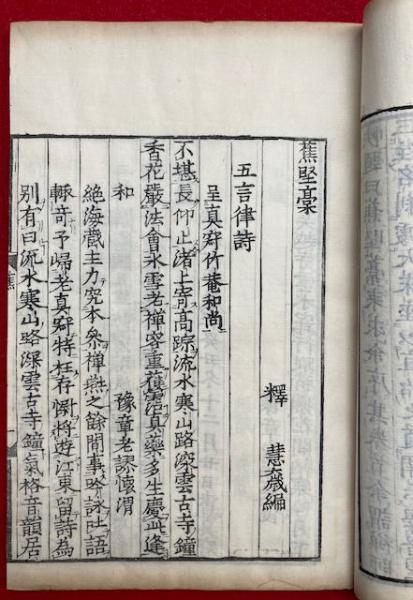 蕉堅稾
釋 慧奯編
五言律詩
呈真寂竹菴和尚
不堪長仰止渚上寄高踪流水寒山路深雲古寺鐘
香花嚴法會氷雪老禪容重獲霑真藥多生慶此逢
和
豫章老謬懷渭
絶海藏主力究本參禪燕之餘間事吟詠吐語
輙奇予歸老真寂特枉存慰將遊江東留詩為
別有曰流水寒山路深雲古寺鐘氣格音韻居
蕉